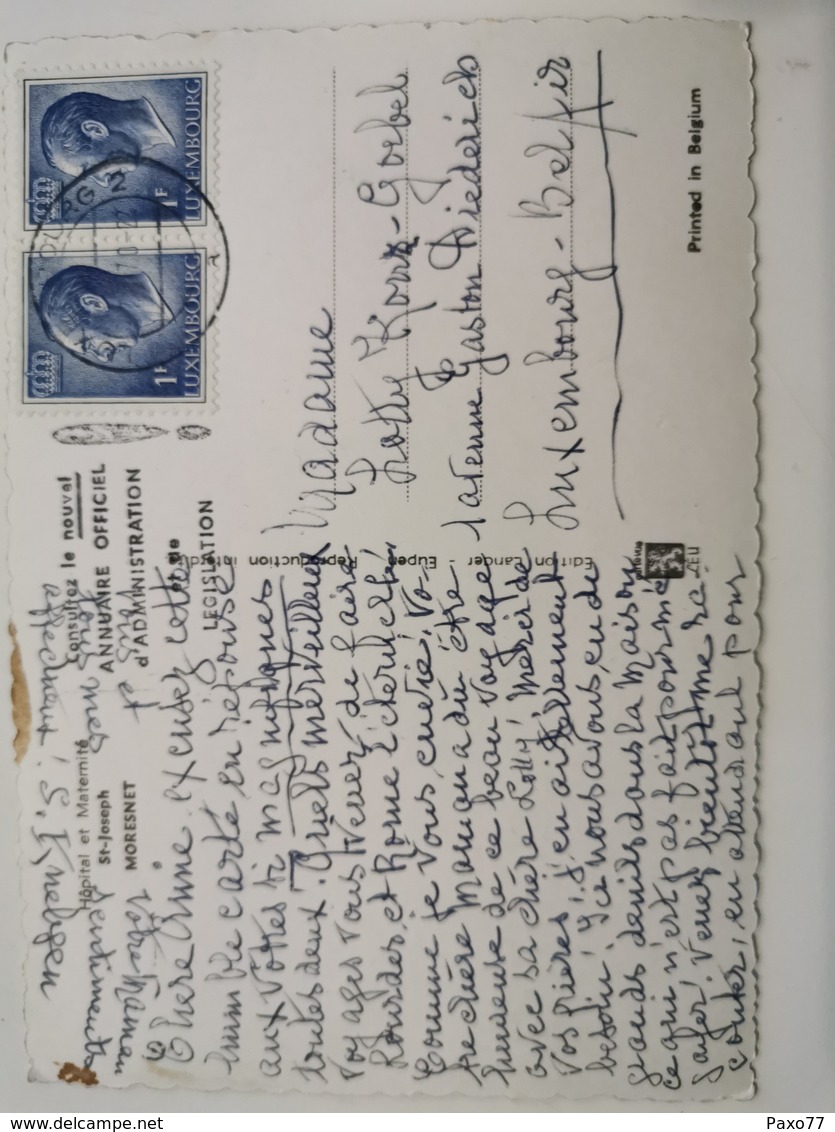 Hôpital et Maternité
St-Joseph
MORESNET
Chère Amie. excusez cette
humble carte, en réponse
aux vôtres si magnifiques
toutes deux. Quels merveilleux
voyages vous venez de faire
Lourdes, et Rome l'éternelle!
Comme je vous envie! Vo-
tre chère Maman a dû être
heureuse de ce beau voyage
avec sa chère Lolly! Merci de
vos prières! j'en ai tellement
besoin! Ici nous avons, eu de
grands deuils dans la maison
ce qui n'est pas fait pour m'é-
gayer! Venez bientôt me ra-
conter, en attendant pour
vous et
votre Maman
tous mes
sentiments
affectueux! S.
Consultez le nouvel
ANNUAIRE OFFICIEL
d'ADMINISTRATION
et de
LEGISLATION
LUXEMBOURG
1F
LUXEMBOURG
1F
Madame
Lolly - Goebel
1 avenue Gaston Diederich
Luxembourg - Belair
Edition Ranger - Eupen
Reproduction interdite
CEU
Printed in Belgium
delcampe.net
Paxo77